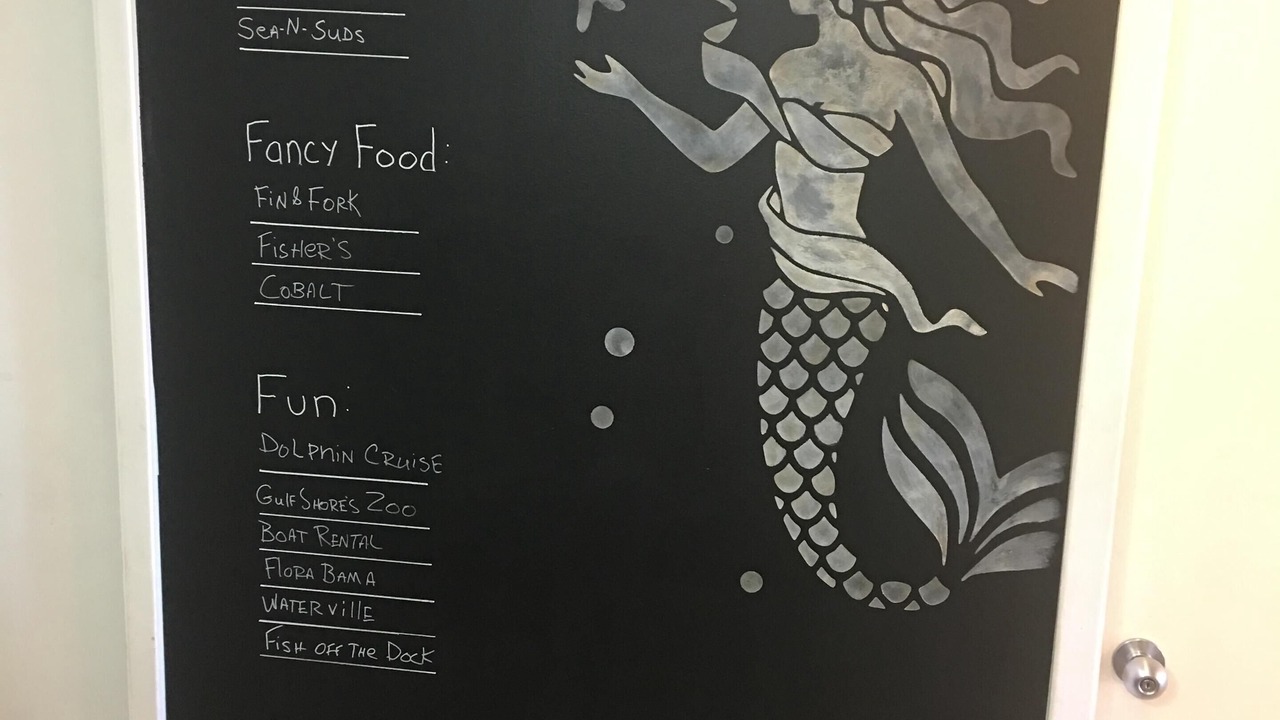 SEA-N-SUDS
Fancy Food:
FiN & FORK
FiSHER'S
COBALT
Fun:
DOLPHIN CRUISE
Gulf SHORE'S ZOO
BOAT RENTAL
FlORA BAMA
WATERVillE
FisH OFF THE DOCK